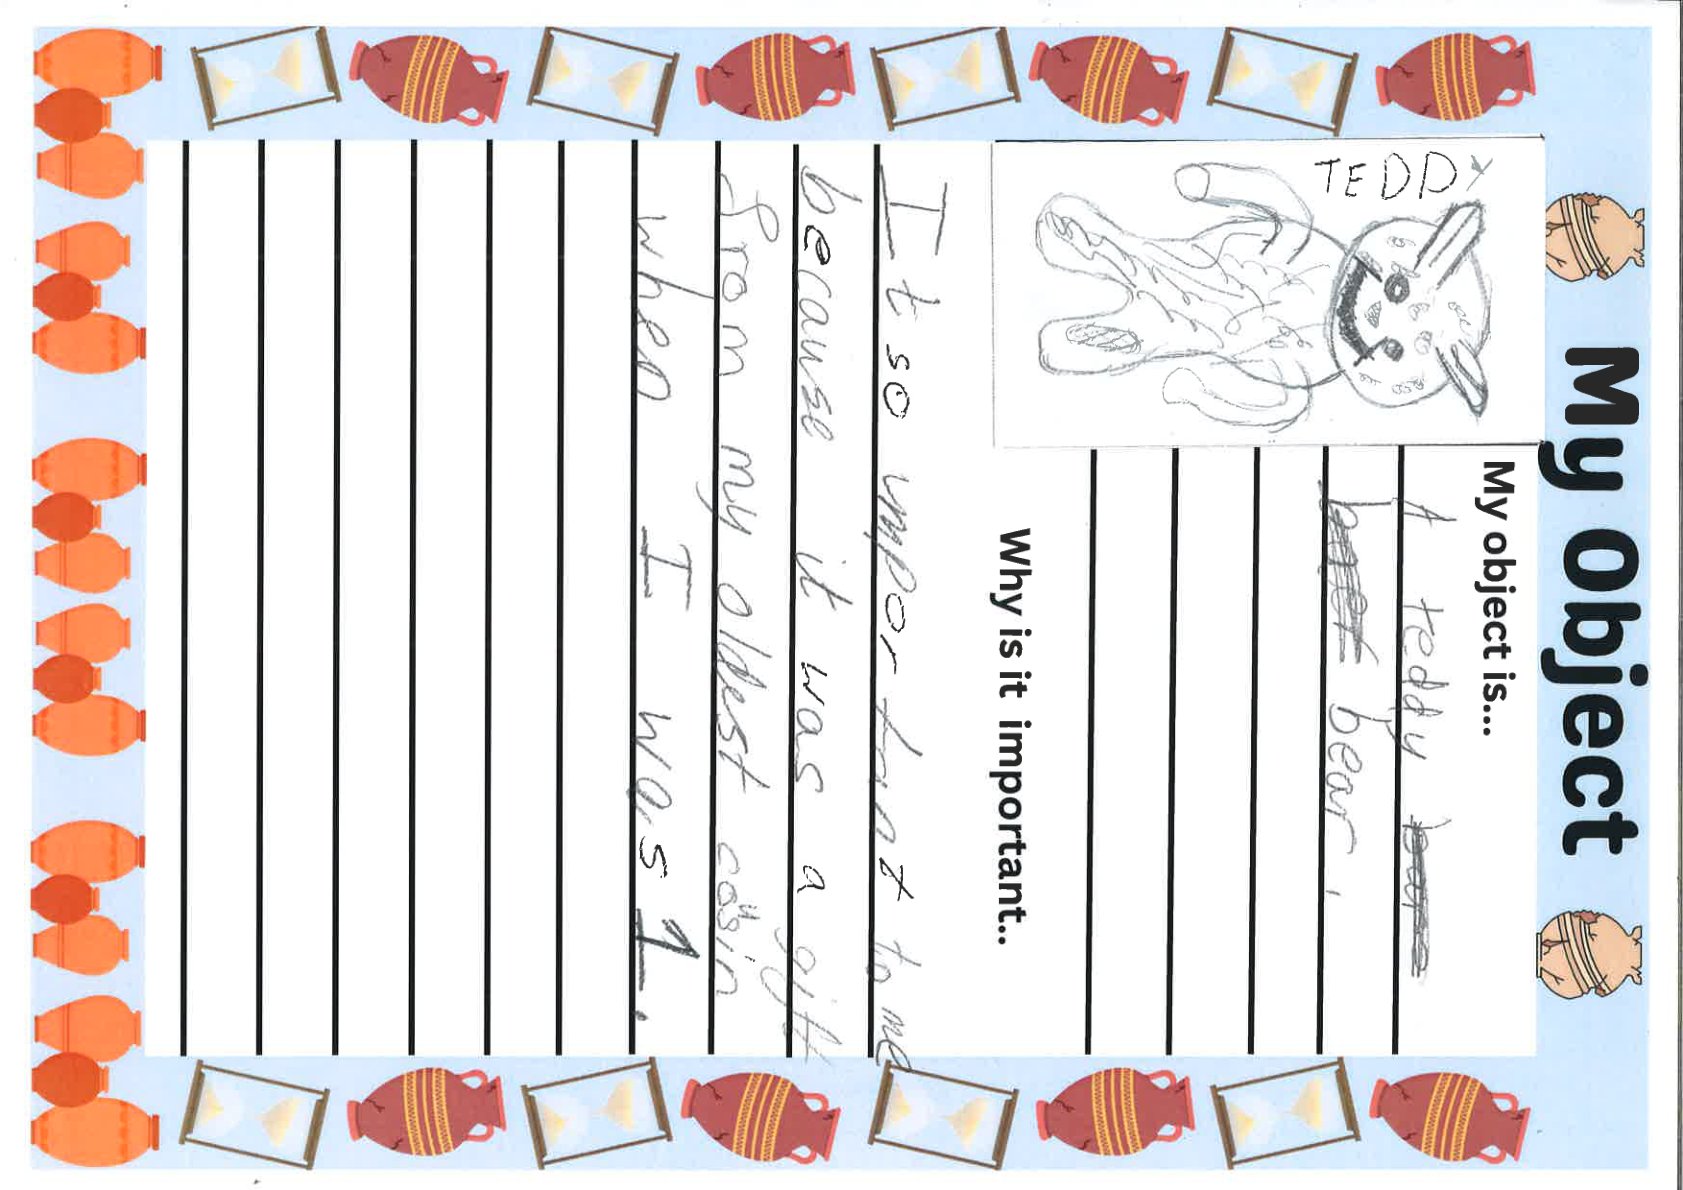 My Object
TEDDY
My object is...
A teddy
bear.
Why is it important..
It so important to me
because it was a gift
from my oldest cousin
when I was 1.